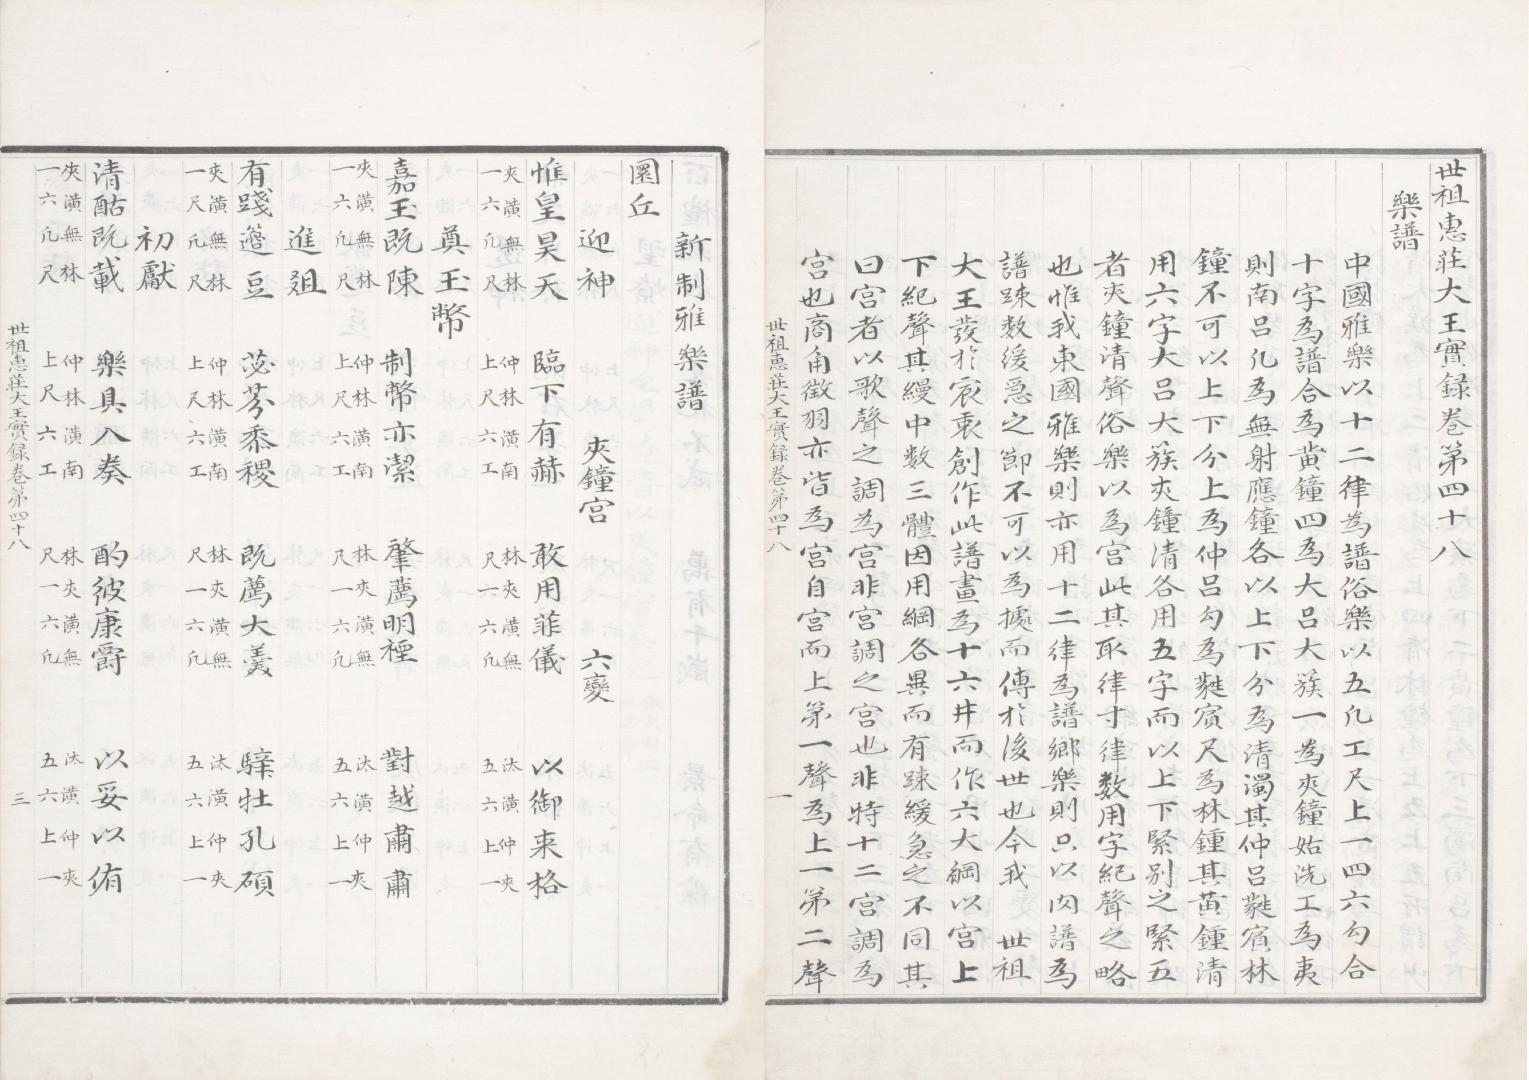 世祖惠莊大王實錄卷第四十八
樂譜
中國雅樂以十二律為譜俗樂以五凡工尺上一四六勾合
十字為譜合為黄鐘四為大吕大簇一為夾鐘始洗工為夷
則南吕凡為無射應鐘各以上下分為清濁其仲吕蕤賓林
鐘不可以上下分上為仲吕勾為蕤賓尺為林鍾其黄鍾清
用六字大吕大簇夾鐘清各用五字而以上下緊别之緊五
者夾鐘清聲俗樂以為宫此其取律寸律数用字紀聲之略
也惟我東國雅樂則亦用十二律為譜鄉樂則只以肉譜為
譜踈数緩急之節不可以為據而傳於後世也今我 世祖
大王發於宸衷創作此譜畫為十六井而作六大綱以宫上
下紀聲其縵中数三體因用綱各異而有踈緩急之不同其
曰宫者以歌聲之調為宫非宫調之宫也非特十二宫調為
宫也商角徵羽亦皆為宫自宫而上第一聲為上一第二聲
世祖惠莊大王實錄卷第四十八 一
新制雅樂譜
圜丘
迎神 夾鐘宫 六變
惟皇昊天 臨下有赫 敢用菲儀 以御来格
夾潢無林 仲林潢南 林夾潢無 汰潢仲夾
一六凡尺 上尺六工 尺一六凡 五六上一
奠玉幣
嘉玉既陳 制幣亦潔 肇薦明禋 對越肅肅
夾潢無林 仲林潢南 林夾潢無 汰潢仲夾
一六凡尺 上尺六工 尺一六凡 五六上一
進俎
有踐籩豆 苾芬黍稷 既薦大羹 騂牡孔碩
夾潢無林 仲林潢南 林夾潢無 汰潢仲夾
一尺凡尺 上尺六工 尺一六凡 五六上一
初獻
清酤既載 樂具入奏 酌彼康爵 以妥以侑
夾潢無林 仲林潢南 林夾潢無 汰潢仲夾
一六凡尺 上尺六工 尺一六凡 五六上一
世祖惠莊大王實錄卷第四十八 三